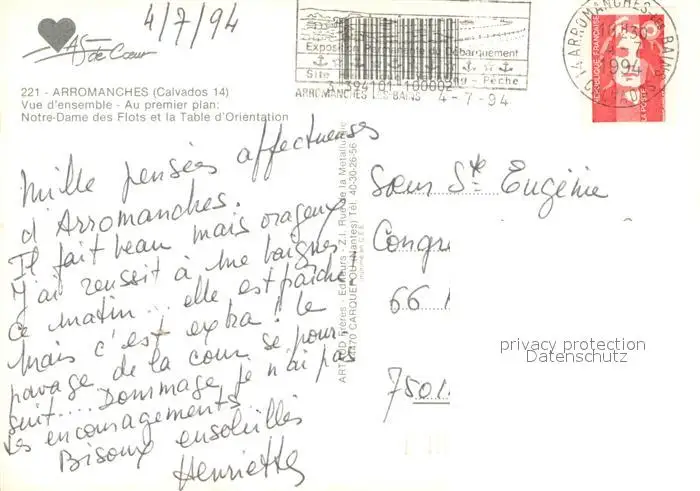 4/7/94
As
de Cœur
221 - ARROMANCHES (Calvados 14)
Vue d'ensemble - Au premier plan:
Notre-Dame des Flots et la Table d'Orientation
Mille pensées affectueuses
d'Arromanches.
Il fait beau mais orageux
J'ai reussit à me baigner
ce matin... elle est fraiche
mais c'est extra! le
pavage de la cour se pour-
suit.... Dommage je n'ai pas
les encouragements
Bisoux ensoleillés
Henriette
Frères - Editeurs - Z.I. Rue de la Métallurgie
44470 CARQUEFOU (Nantes) Tél. 40-30-26-56
Exposition Permanente du Débarquement
Site
Pêche
394101 100002
ARROMANCHES LES BAINS 4-7-94
14 ARROMANCHES LES BAINS
10H30
4-7
1994
CALVADOS
REPUBLIQUE FRANÇAISE
LA POSTE
Sœur Ste Eugénie
Congr
66
7501
privacy protection
Datenschutz